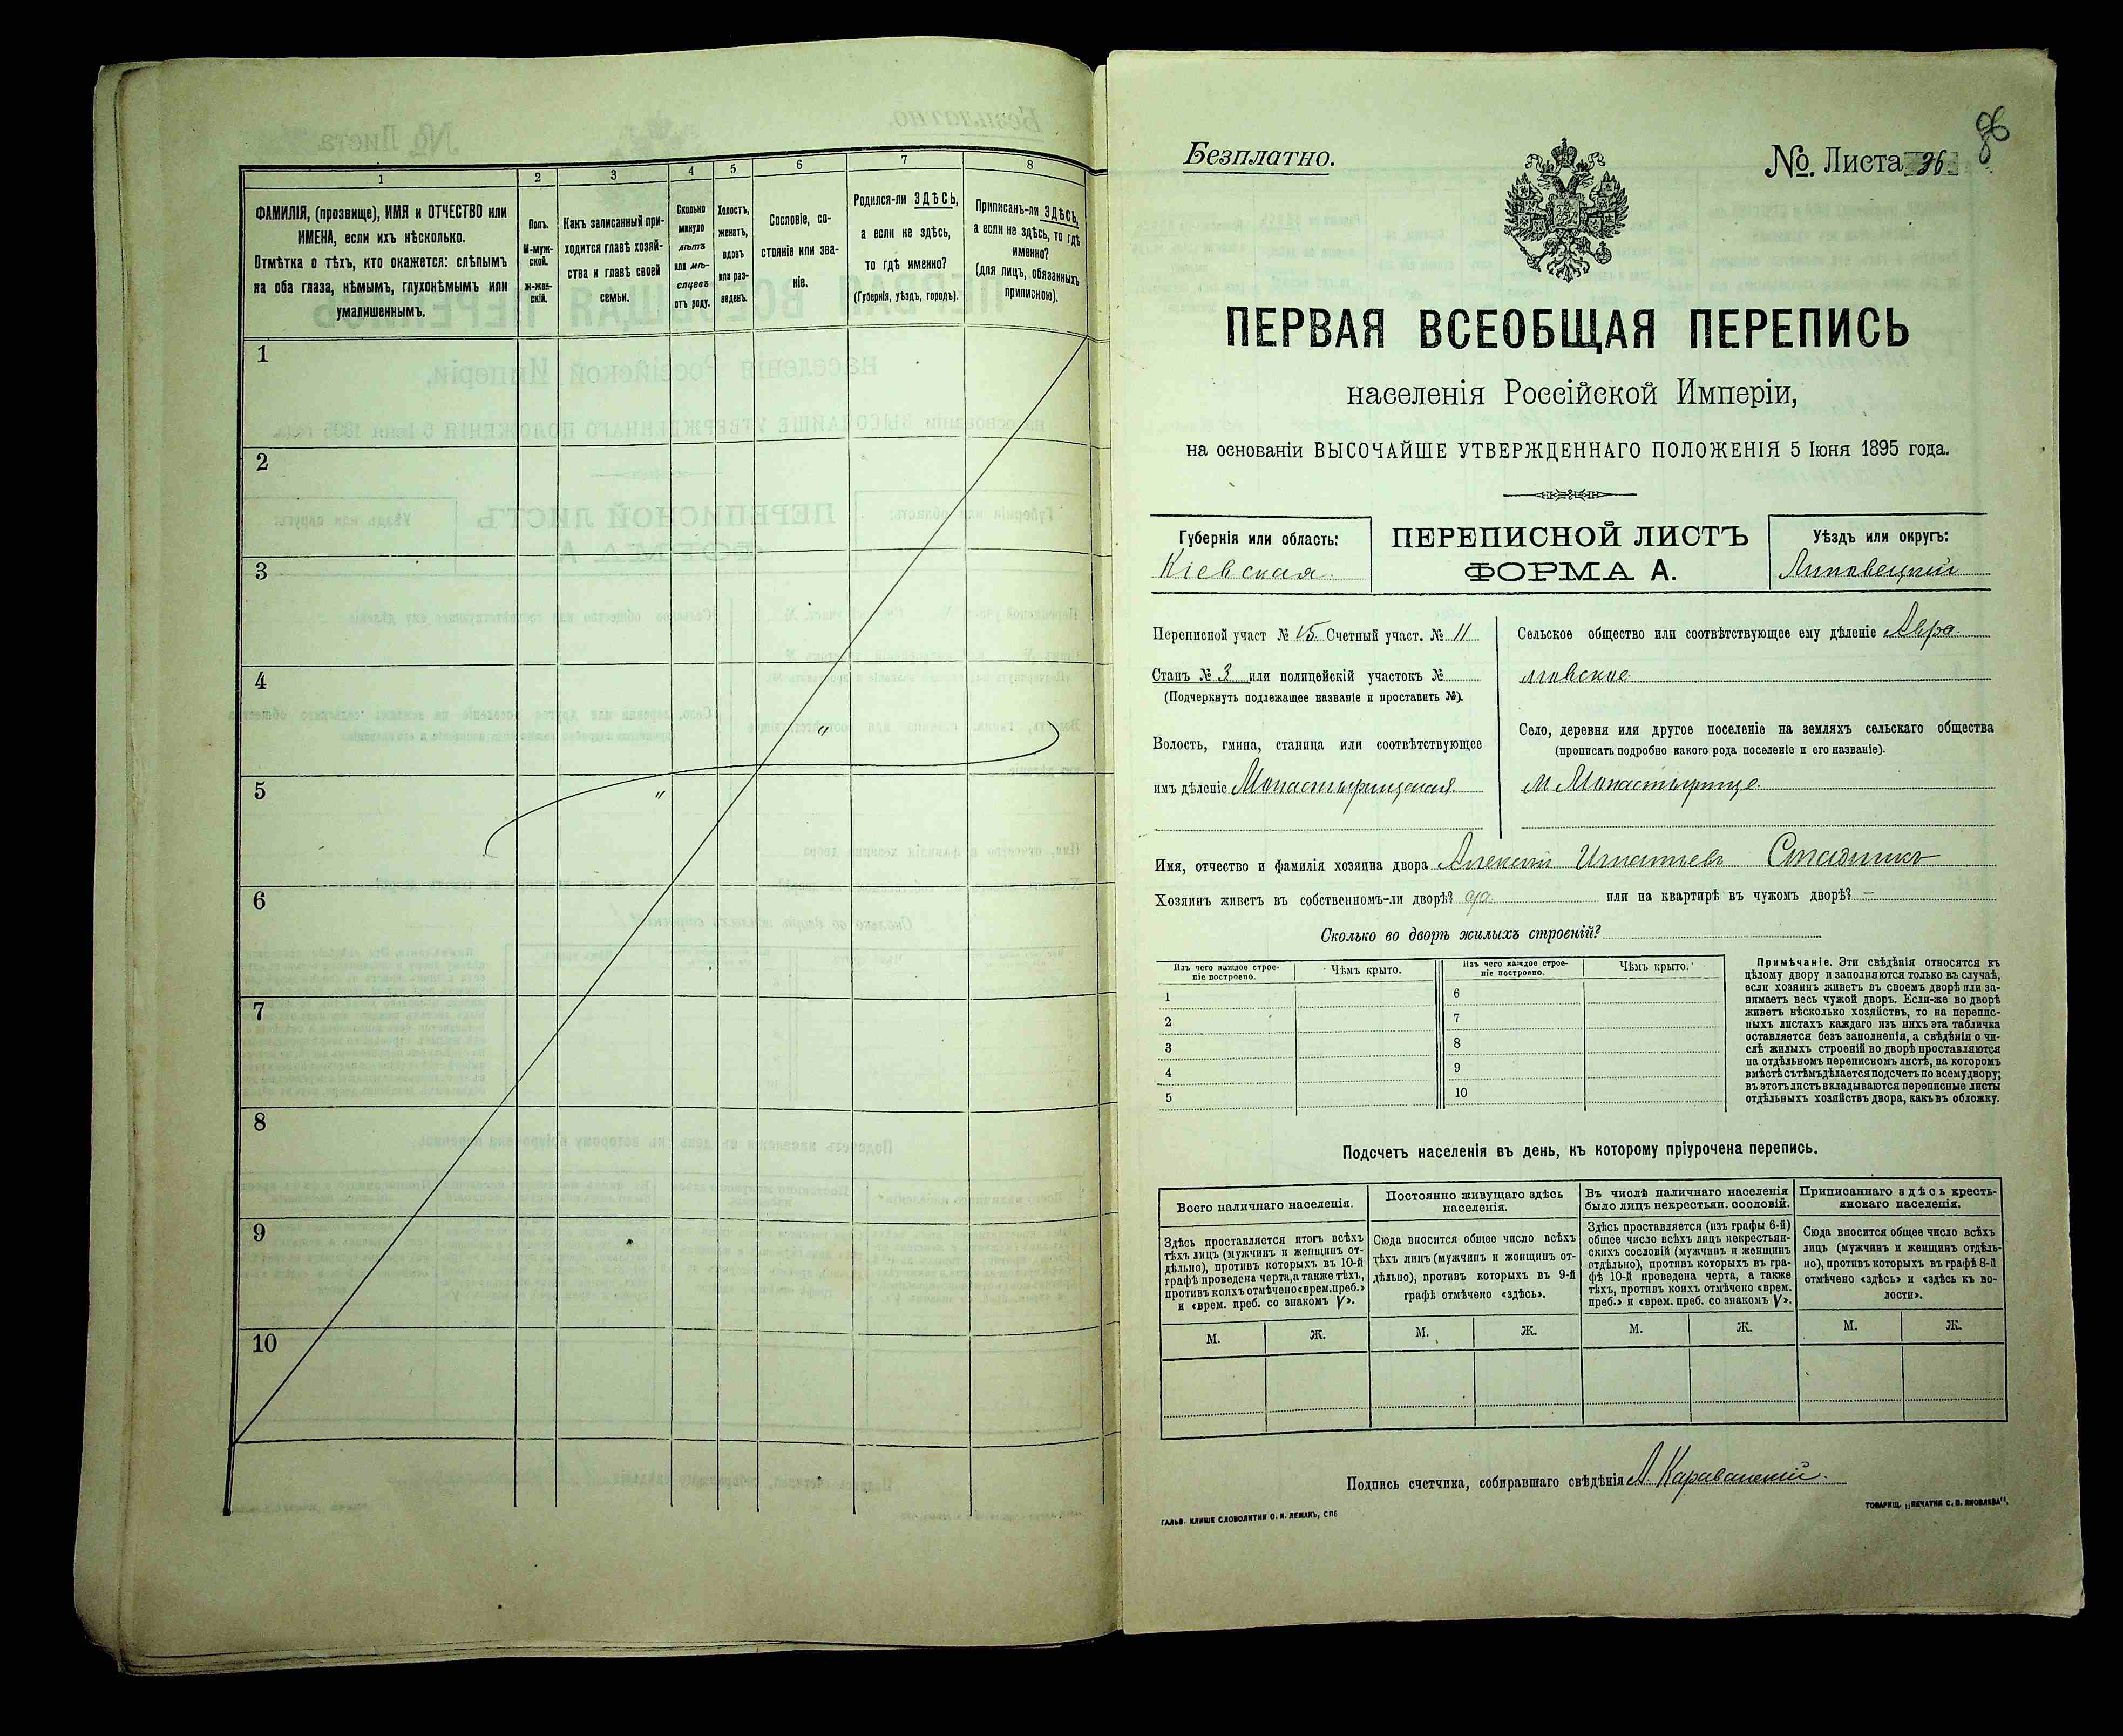 1
2
3
4
5
6
7
8
ФАМИЛІЯ, (прозвище), ИМЯ и ОТЧЕСТВО или
ИМЕНА, если ихъ нѣсколько.
Отмѣтка о тѣхъ, кто окажется: слѣпымъ
на оба глаза, нѣмымъ, глухонѣмымъ или
умалишеннымъ.
Полъ.
М-муж-
ской.
ж-жен-
скій.
Какъ записанный при-
ходится главѣ хозяй-
ства и главѣ своей
семьи.
Сколько
минуло
лѣтъ
или мѣ-
сяцевъ
отъ роду.
Холостъ,
женатъ,
вдовъ
или раз-
веденъ.
Сословіе, со-
стояніе или зва-
ніе.
Родился-ли ЗДѢСЬ,
а если не здѣсь,
то гдѣ именно?
(Губернія, уѣздъ, городъ).
Приписанъ-ли ЗДѢСЬ,
а если не здѣсь, то гдѣ
именно?
(для лицъ, обязанныхъ
припискою).
1
2
3
4
5
6
7
8
9
10
86
Безплатно.
№. Листа 36.
ПЕРВАЯ ВСЕОБЩАЯ ПЕРЕПИСЬ
населенія Россійской Имперіи,
на основаніи ВЫСОЧАЙШЕ УТВЕРЖДЕННАГО ПОЛОЖЕНІЯ 5 Іюня 1895 года.
Губернія или область:
Кіевская
ПЕРЕПИСНОЙ ЛИСТЪ
ФОРМА А.
Уѣздъ или округъ:
Липовецкій
Переписной участ № 15. Счетный участ. № 11
Станъ № 3 или полицейскій участокъ №
(Подчеркнуть подлежащее названіе и проставить №).
Волость, гмина, станица или соотвѣтствующее
имъ дѣленіе Монастырищская
Сельское общество или соотвѣтствующее ему дѣленіе Авра
мовское
Село, деревня или другое поселеніе на земляхъ сельскаго общества
(прописать подробно какого рода поселеніе и его названіе).
м Монастырище.
Имя, отчество и фамилія хозяина двора Алексѣй Игнатьевъ Стадникъ
Хозяинъ живетъ въ собственномъ-ли дворѣ? да или на квартирѣ въ чужомъ дворѣ? —
Сколько во дворѣ жилыхъ строеній?
Изъ чего каждое строе-
ніе построено.
Чѣмъ крыто.
Изъ чего каждое строе-
ніе построено.
Чѣмъ крыто.
1
2
3
4
5
6
7
8
9
10
Примѣчаніе. Эти свѣдѣнія относятся къ
цѣлому двору и заполняются только въ случаѣ,
если хозяинъ живетъ въ своемъ дворѣ или за-
нимаетъ весь чужой дворъ. Если-же во дворѣ
живетъ нѣсколько хозяйствъ, то на перепис-
ныхъ листахъ каждаго изъ нихъ эта табличка
оставляется безъ заполненія, а свѣдѣнія о чи-
слѣ жилыхъ строеній во дворѣ проставляются
на отдѣльномъ переписномъ листѣ, на которомъ
вмѣстѣ съ тѣмъ дѣлается подсчетъ по всему двору;
въ этотъ листъ вкладываются переписные листы
отдѣльныхъ хозяйствъ двора, какъ въ обложку.
Подсчетъ населенія въ день, къ которому пріурочена перепись.
Всего наличнаго населенія.
Здѣсь проставляется итогъ всѣхъ
тѣхъ лицъ (мужчинъ и женщинъ от-
дѣльно), противъ которыхъ въ 10-й
графѣ проведена черта, а также тѣхъ,
противъ коихъ отмѣчено «врем. преб.»
и «врем. преб. со знакомъ V».
Постоянно живущаго здѣсь
населенія.
Сюда вносится общее число всѣхъ
тѣхъ лицъ (мужчинъ и женщинъ от-
дѣльно), противъ которыхъ въ 9-й
графѣ отмѣчено «здѣсь».
Въ числѣ наличнаго населенія
было лицъ некрестьян. сословій.
Здѣсь проставляется (изъ графы 6-й)
общее число всѣхъ лицъ некрестьян-
скихъ сословій (мужчинъ и женщинъ
отдѣльно), противъ которыхъ въ гра-
фѣ 10-й проведена черта, а также
тѣхъ, противъ коихъ отмѣчено «врем.
преб.» и «врем. преб. со знакомъ V».
Приписаннаго здѣсь кресть-
янскаго населенія.
Сюда вносится общее число всѣхъ
лицъ (мужчинъ и женщинъ отдѣль-
но), противъ которыхъ въ графѣ 8-й
отмѣчено «здѣсь» и «здѣсь къ во-
лости».
М. Ж. М. Ж. М. Ж. М. Ж.
Подпись счетчика, собиравшаго свѣдѣнія А. Караванскій.
ГАЛЬВ. КЛИШЕ СЛОВОЛИТНИ О. И. ЛЕМАНЪ, СПБ
ТОВАРИЩ. „ПЕЧАТНЯ С. П. ЯКОВЛЕВА“.